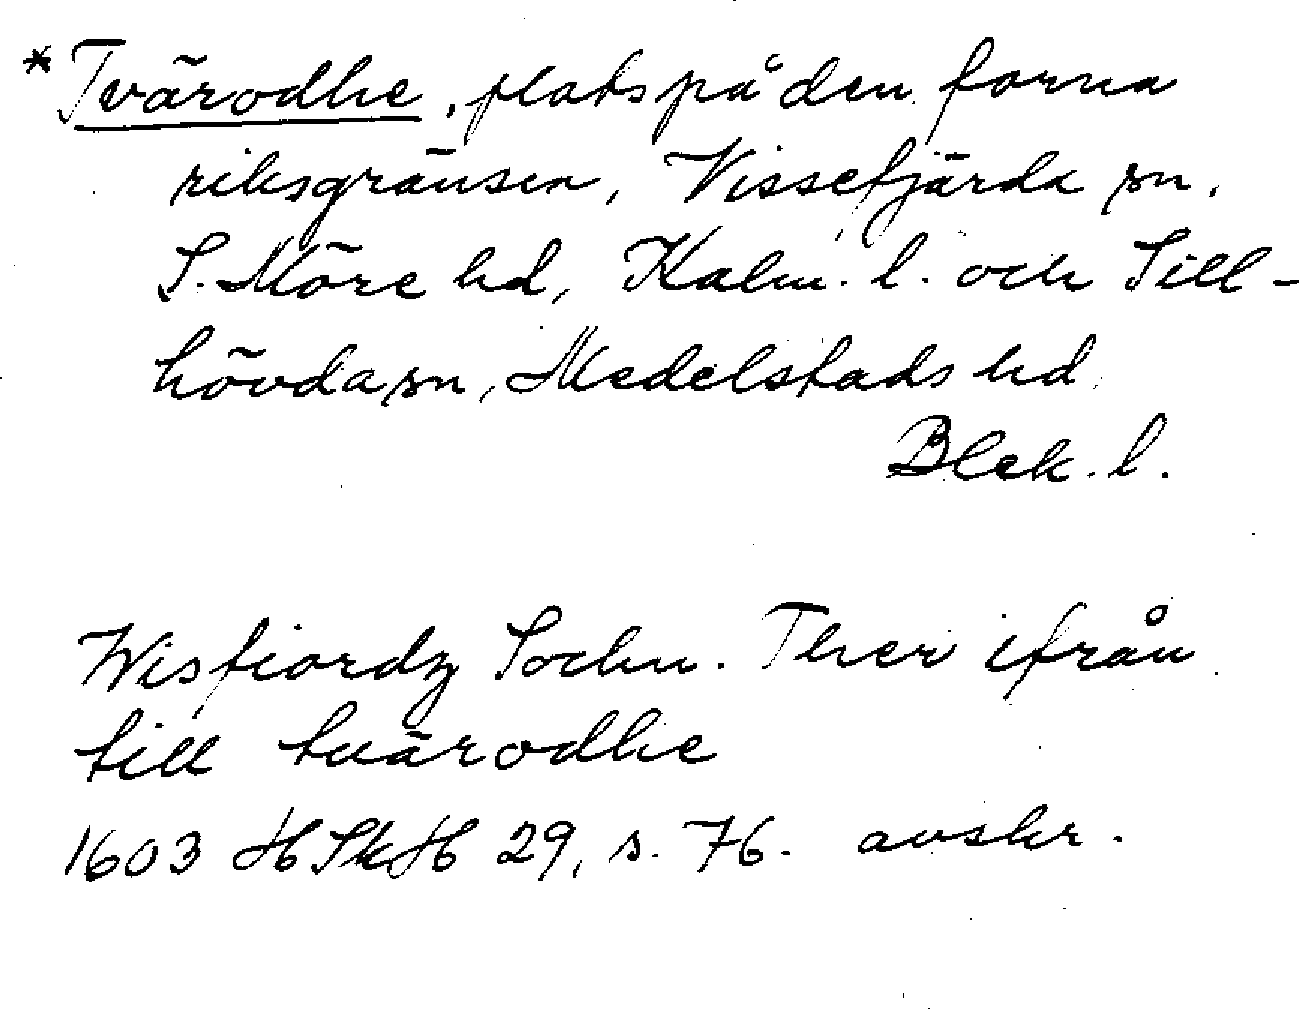 * Tvärodhe, plats på den forna
riksgränsen, Vissefjärda sn,
S. Möre hd, Kalm. l. och Sill-
hövda sn, Medelstads hd
Blek. l.
Wisfiordz Sochn. Ther ifrån
till tuärodhe
1603 HSkH 29, s. 76. avskr.